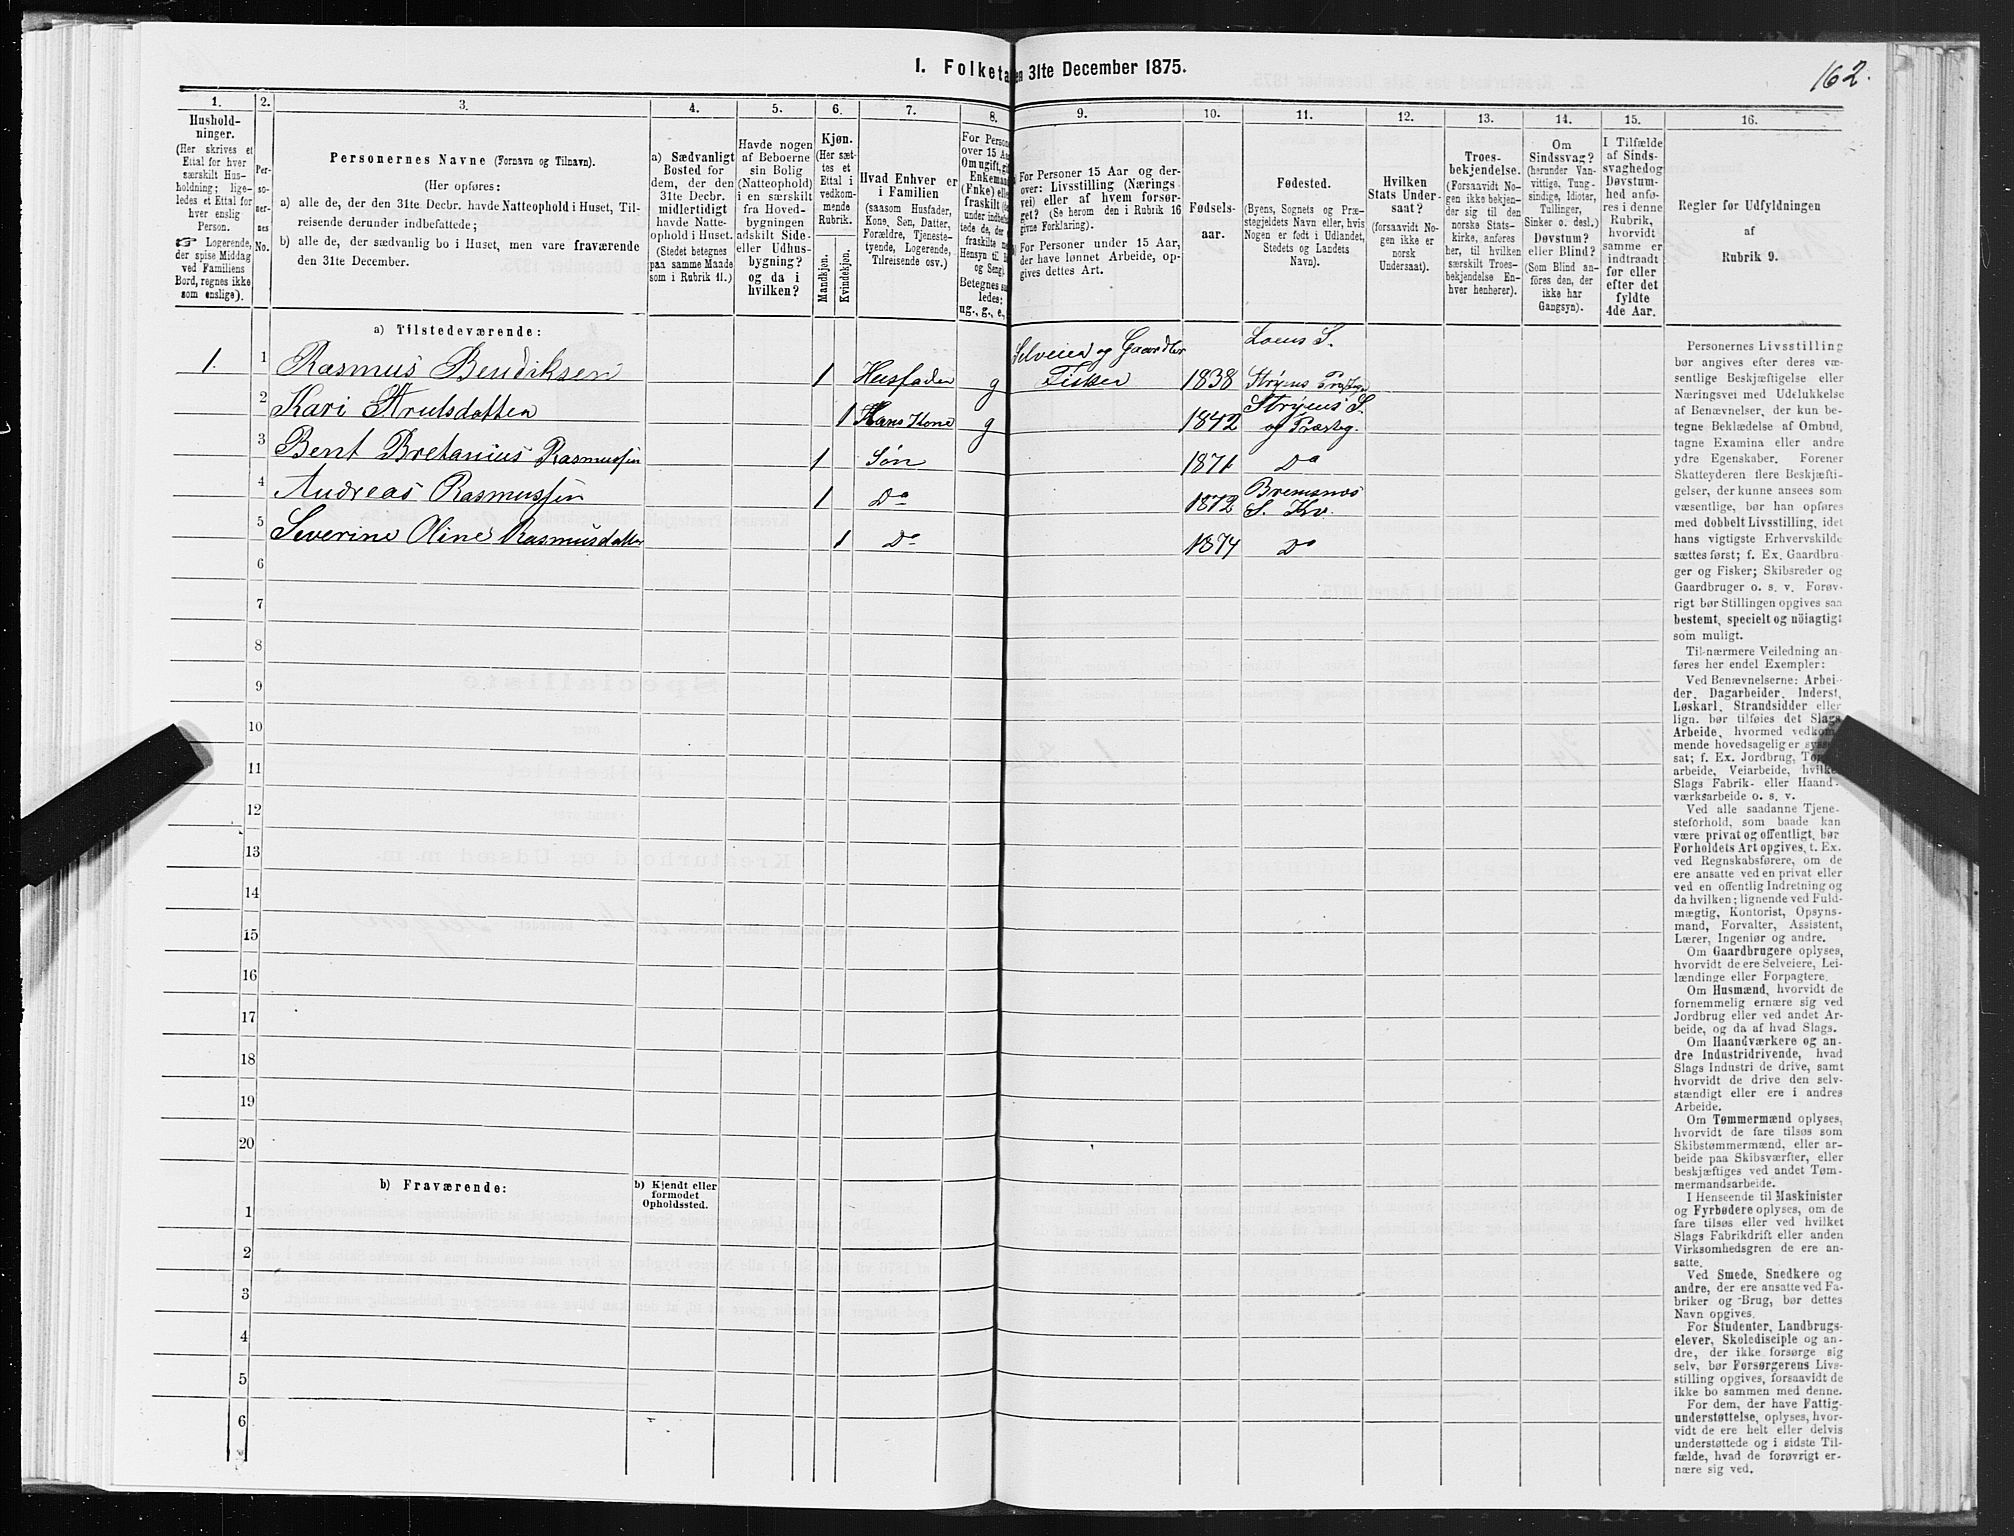 I. Folketa en 31te December 1875.
162.
1. 2. 3. 4. 5. 6. 7. 8. 9. 10. 11. 12. 13. 14. 15. 16.
Hushold-
ninger.
(Her skrives et
Ettal for hver
særskilt Hus-
holdning; lige-
ledes et Ettal for
hver enslig
Person.
☞ Logerende,
der spise Middag
ved Familiens
Bord, regnes ikke
som enslige).
Per-
so-
ner-
nes
No.
Personernes Navne (Fornavn og Tilnavn).
(Her opføres:
a) alle de, der den 31te Decbr. havde Natteophold i Huset, Til-
reisende derunder indbefattede;
b) alle de, der sædvanlig bo i Huset, men vare fraværende
den 31te December.
a) Sædvanligt
Bosted for
dem, der den
31te Decbr.
midlertidigt
havde Natte-
ophold i Huset.
(Stedet betegnes
paa samme Maade
som i Rubrik 11.)
Havde nogen
af Beboerne
sin Bolig
(Natteophold)
i en særskilt
fra Hoved-
bygningen
adskilt Side-
eller Udhus-
bygning?
og da i
hvilken?
Kjøn.
(Her sæt-
tes et
Ettal i
vedkom-
mende
Rubrik.
Mandkjøn.
Kvindekjøn.
Hvad Enhver er
i Familien
(saasom Husfader,
Kone, Søn, Datter,
Forældre, Tjeneste-
tyende, Logerende,
Tilreisende osv.)
For Persone
over 15 Aa
Om ugift, gi
Enkeman
(Enke) elle
fraskilt (
under indbe
tede de, der
fraskilte
Hensyn til B
og Seng).
Betegnes sa
ledes:
ug., g., e.,
For Personer 15 Aar og der-
over: Livsstilling (Nærings-
vei) eller af hvem forsør-
get? (Se herom den i Rubrik 16
givne Forklaring).
For Personer under 15 Aar,
der have lønnet Arbeide, op-
gives dettes Art.
Fødsels-
aar.
Fødested.
(Byens, Sognets og Præ-
stegjeldets Navn eller, hvis
Nogen er født i Udlandet,
Stedets og Landets
Navn).
Hvilken
Stats Under-
saat?
(forsaavidt No-
gen ikke er
norsk
Undersaat).
Troes-
bekjendelse.
(Forsaavidt No-
gen ikke bekjen-
der sig til den
norske Stats-
kirke, anføres
her, til hvilken
særskilt Troes-
bekjendelse En-
hver henhører).
Om
Sindssvag?
(herunder Van-
vittige, Tung-
sindige, Idioter,
Tullinger,
Sinker o. desl.)
Døvstum?
eller Blind?
(Som Blind an-
føres den, der
ikke har
Gangsyn).
I Tilfælde
af Sinds-
svaghed og
Døvstum-
hed anfø-
res i denne
Rubrik,
hvorvidt
samme er
indtraadt
før eller
efter det
fyldte
4de Aar.
Regler for Udfyldningen
af
Rubrik 9.
a) Tilstedeværende:
1. 1 Rasmus Bendiksen 1 Husfader g Selveier og Gaardbr Fisker 1838 Loens S. Stryens Præsteg
2 Kari Arulsdatter 1 Hans Kone g 1842 Stryens S. og Præsteg.
3 Bent Bretanius Rasmussen 1 Søn 1871 Do
4 Andreas Rasmussen 1 Do 1872 Bremsnes S. Kv.
5 Severine Oline Rasmusdatter 1 Do 1874 Do
6
7
8
9
10
11
12
13
14
15
16
17
18
19
20
b) Fraværende:
b) Kjendt eller
formodet
Opholdssted.
1
2
3
4
5
6
Personernes Livsstilling
bør angives efter deres væ-
sentlige Beskjæftigelse eller
Næringsvei med Udelukkelse
af Benævnelser, der kun be-
tegne Beklædelse af Ombud,
tagne Examina eller andre
ydre Egenskaber. Forener
Skatteyderen flere Beskjæfti-
gelser, der kunne ansees som
væsentlige, bør han opføres
med dobbelt Livsstilling, idet
hans vigtigste Erhvervskilde
sættes først; f. Ex. Gaardbru-
ger og Fisker; Skibsreder og
Gaardbruger o. s. v. Forøv-
rigt bør Stillingen opgives saa
bestemt, specielt og nöiagtigt
som muligt.
Til nærmere Veiledning an-
føres her endel Exempler:
Ved Benævnelserne: Arbei-
der, Dagarbeider, Inderst,
Løskarl, Strandsidder eller
lign. bør tilføies det Slags
Arbeide, hvormed vedkom-
mende hovedsagelig er syssel-
sat; f. Ex. Jordbrug, Tøm
arbeide, Veiarbeide, hvilke
Slags Fabrik- eller Haand-
værksarbeide o. s. v.
Ved alle saadanne Tjene-
steforhold, som baade kan
være privat og offentligt, bør
Forholdets Art opgives, t. Ex.
ved Regnskabsførere, om de
ere ansatte ved en privat eller
ved en offentlig Indretning og
da hvilken; lignende ved Fuld-
mægtig, Kontorist, Opsyns-
mand, Forvalter, Assistent,
Lærer, Ingeniør og andre.
Om Gaardbrugere oplyses,
hvorvidt de ere Selveiere, Lei-
lændinge eller Forpagtere.
Om Husmænd, hvorvidt de
fornemmelig ernære sig ved
Jordbrug eller ved andet Ar-
beide, og da af hvad Slags.
Om Haandværkere og an-
dre Industridrivende, hvad
Slags Industri de drive, samt
hvorvidt de drive den selv-
stændigt eller ere i andres
Arbeide.
Om Tømmermænd oplyses,
hvorvidt de fare tilsøs som
Skibstømmermænd, eller ar-
beide paa Skibsværfter, eller
beskjæftiges ved andet Tøm-
mermandsarbeide.
I Henseende til Maskinister
og Fyrbødere oplyses, om de
fare tilsøs eller ved hvilket
Slags Fabrikdrift eller anden
Virksomhedsgren de ere an-
satte.
Ved Smede, Snedkere og
andre, der ere ansatte ved Fa-
briker og Brug, bør dettes
Navn opgives.
For Studenter, Landbrugs-
elever, Skoledisciple og an-
dre, der ikke forsørge sig
selv, bør Forsørgerens Livs-
stilling opgives, forsaavidt de
ikke bo sammen med denne.
For dem, der have Fattig-
understøttelse, oplyses, hvor-
vidt de ere helt eller delvis
understøttede og i sidste Til-
fælde, hvad de forøvrigt er-
nære sig ved.